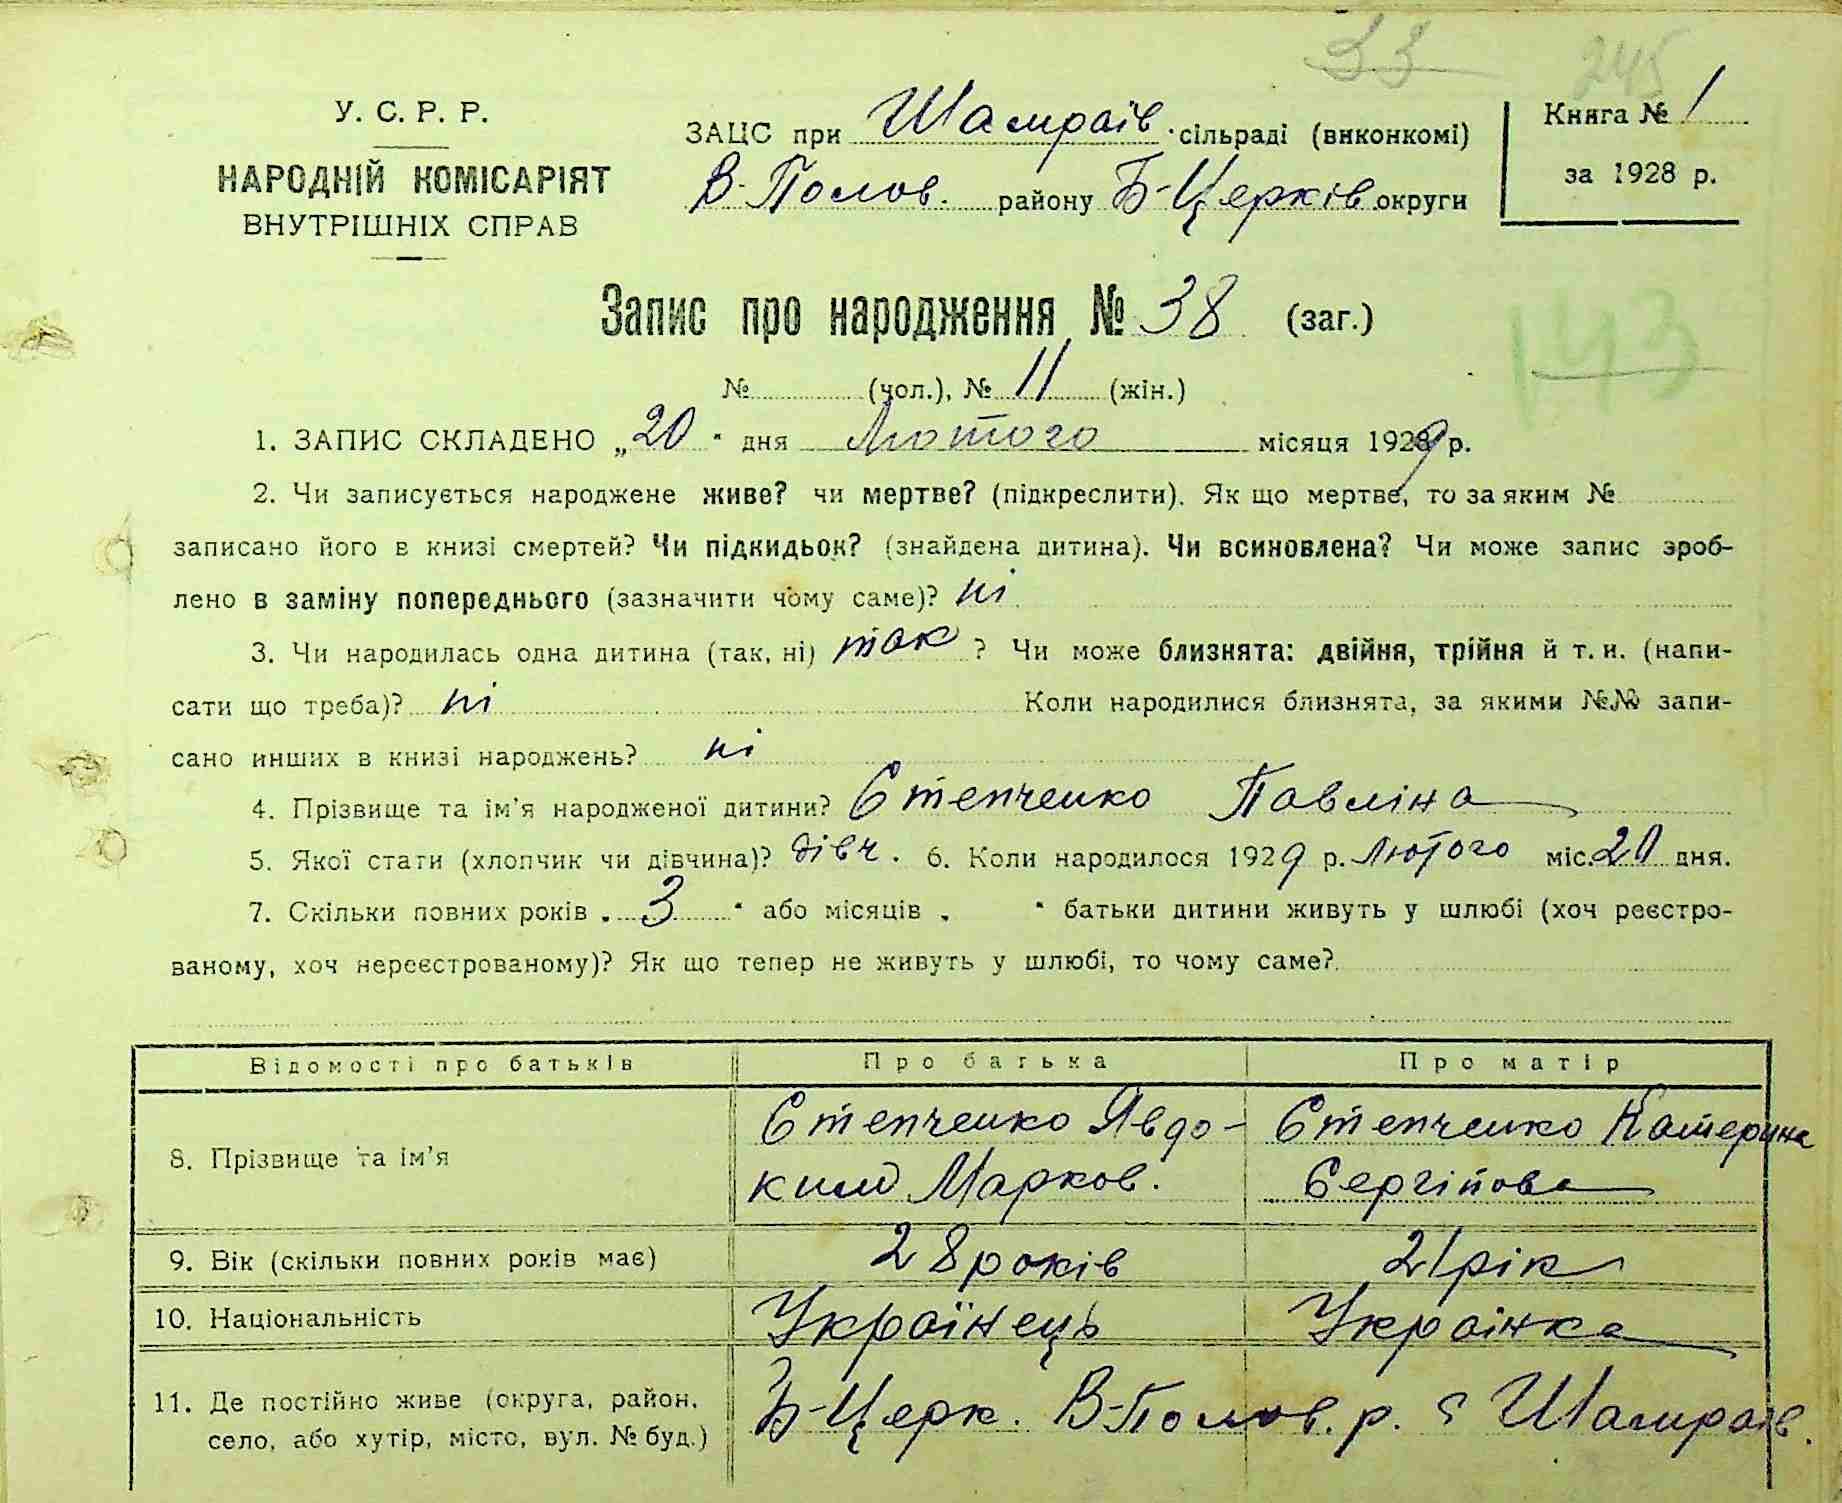 33 245
У. С. Р. Р.
НАРОДНІЙ КОМІСАРІЯТ
ВНУТРІШНІХ СПРАВ
ЗАЦС при Шамраїв. сільраді (виконкомі)
В-Полов. району Б-Церків округи
Книга № 1
за 1928 р.
Запис про народження № 38 (заг.)
143
№ (чол.), № 11 (жін.)
1. ЗАПИС СКЛАДЕНО „20" дня Лютого місяця 1929 р.
2. Чи записується народжене живе? чи мертве? (підкреслити). Як що мертве, то за яким №
записано його в книзі смертей? Чи підкидьок? (знайдена дитина). Чи всиновлена? Чи може запис зроб-
лено в заміну попереднього (зазначити чому саме)? ні
3. Чи народилась одна дитина (так, ні) так ? Чи може близнята: двійня, трійня й т. и. (напи-
сати що треба)? ні Коли народилися близнята, за якими №№ запи-
сано инших в книзі народжень? ні
4. Прізвище та ім'я народженої дитини? Степченко Павліна
5. Якої стати (хлопчик чи дівчина)? дівч. 6. Коли народилося 1929 р. Лютого міс. 20 дня.
7. Скільки повних років „3" або місяців „ " батьки дитини живуть у шлюбі (хоч реєстро-
ваному, хоч нереєстрованому)? Як що тепер не живуть у шлюбі, то чому саме?
Відомості про батьків Про батька Про матір
8. Прізвище та ім'я
Степченко Явдо-
ким Марков.
Степченко Катерина
Сергійова
9. Вік (скільки повних років має) 28 років 21 рік
10. Національність Українець Українка
11. Де постійно живе (округа, район,
село, або хутір, місто, вул. № буд.)
Б-Церк. В-Полов. р. с Шамраїв.